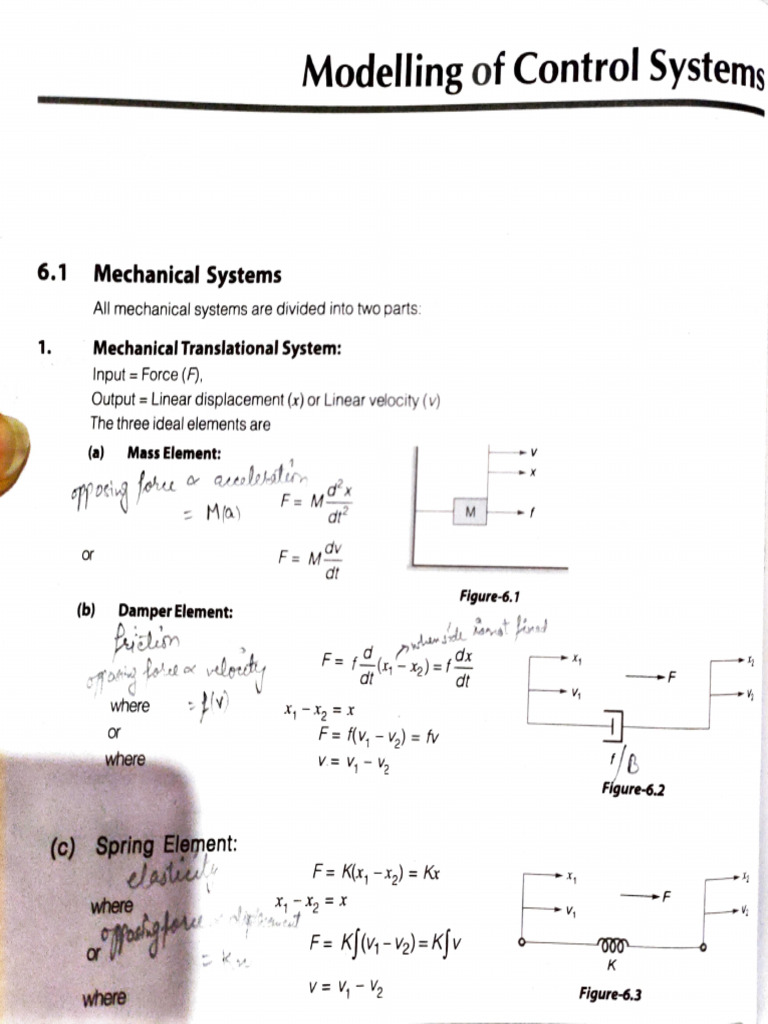 Modelling of Control Systems
6.1 Mechanical Systems
All mechanical systems are divided into two parts:
1. Mechanical Translational System:
Input = Force (F),
Output = Linear displacement (x) or Linear velocity (v)
The three ideal elements are
(a) Mass Element:
opposing force α acceleration
= M(a)
F = M d²x/dt²
or
F = M dv/dt
v
x
M
f
Figure-6.1
(b) Damper Element:
friction
opposing force α velocity
= f(v)
when side is not fixed
F = f d/dt (x₁ – x₂) = f dx/dt
where x₁ – x₂ = x
or F = f(v₁ – v₂) = fv
where v = v₁ – v₂
x₁
v₁
F
x₂
v₂
f/B
Figure-6.2
(c) Spring Element:
elasticity
F = K(x₁ – x₂) = Kx
where x₁ – x₂ = x
opposing force
= Kx
or F = K∫(v₁ – v₂) = K∫v
where v = v₁ – v₂
x₁
v₁
F
x₂
v₂
K
Figure-6.3